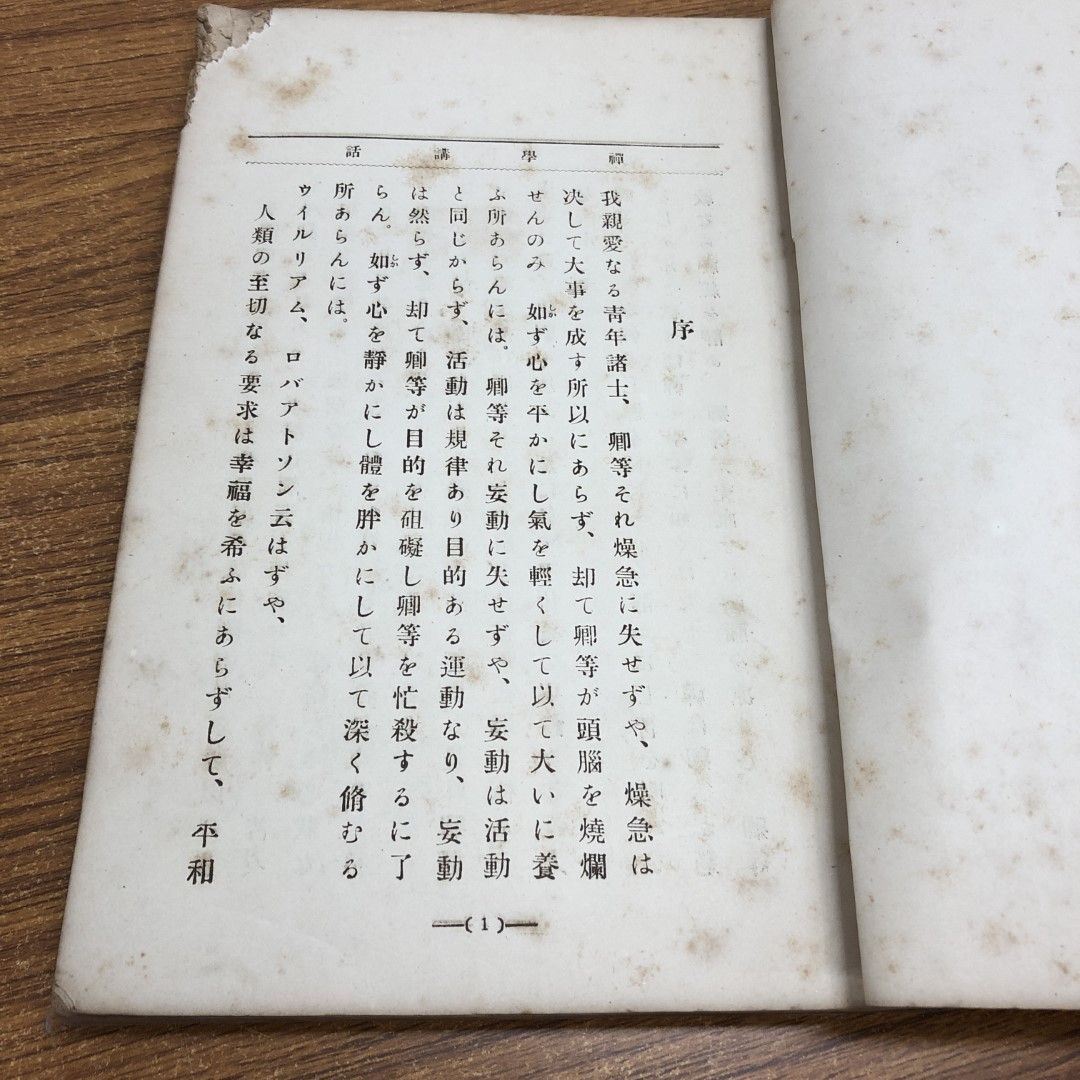 禪學講話
序
我親愛なる靑年諸士、卿等それ燥急に失せずや、燥急は
决して大事を成す所以にあらず、却て卿等が頭腦を燒爛
せんのみ 如ず心を平かにし氣を輕くして以て大いに養
しか
ふ所あらんには。卿等それ妄動に失せずや、妄動は活動
と同じからず、活動は規律あり目的ある運動なり、妄動
は然らず、却て卿等が目的を砠礙し卿等を忙殺するに了
らん。如ず心を靜かにし體を胖かにして以て深く脩むる
しか
所あらんには。
ウイルリアム、ロバアトソン云はずや、
人類の至切なる要求は幸福を希ふにあらずして、平和
(1)